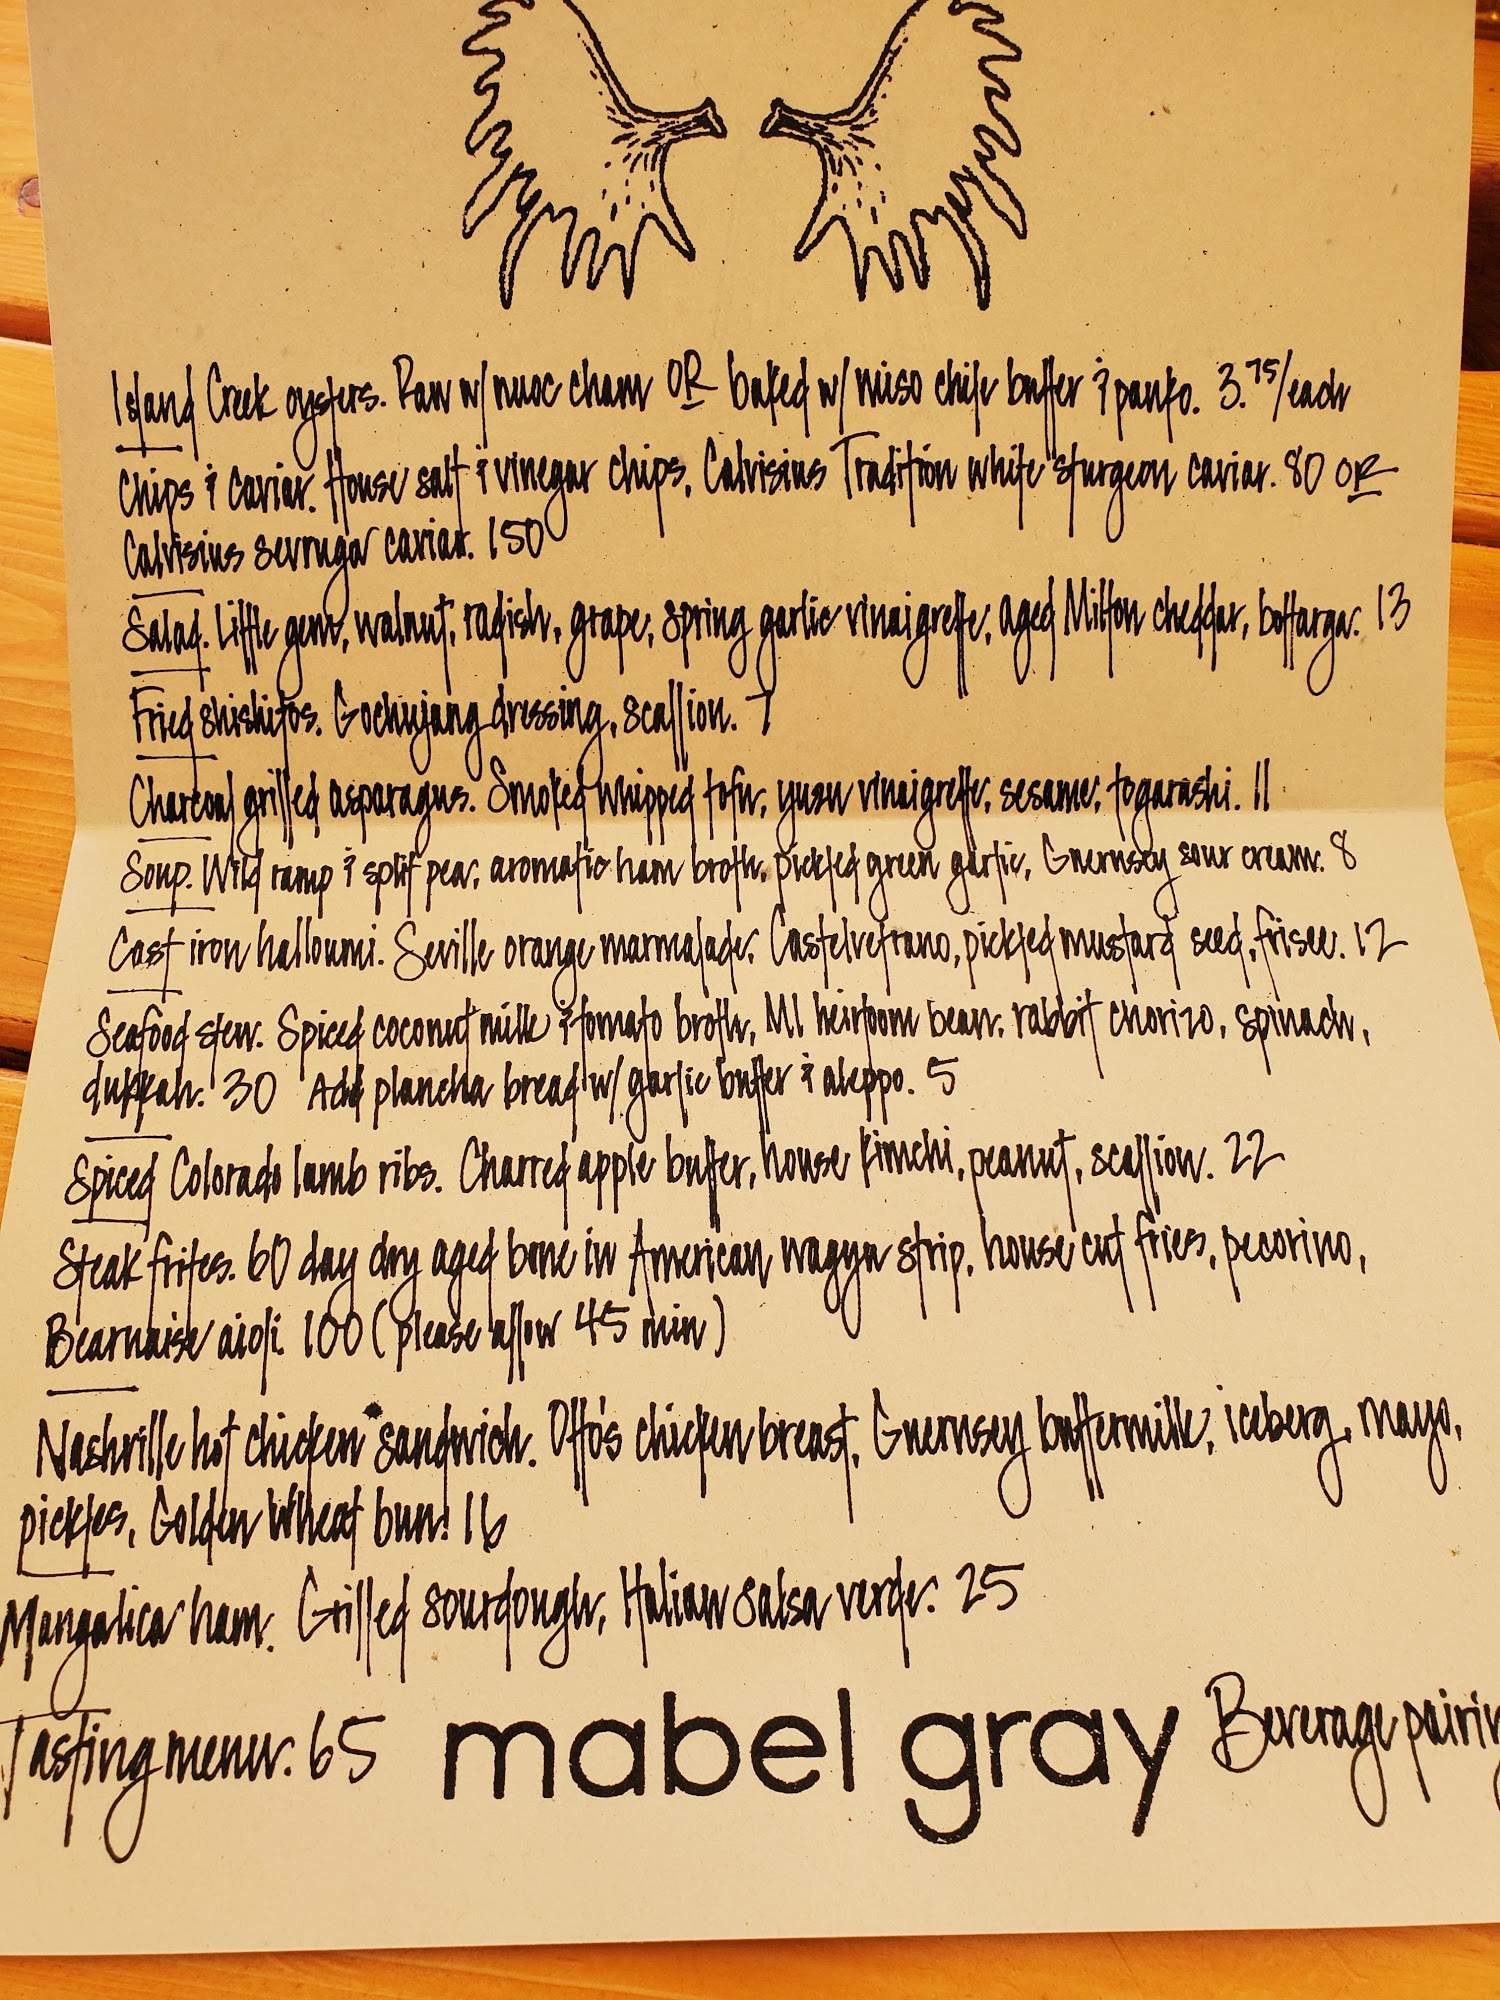 Island Creek oysters. Raw w/ nuoc cham OR baked w/ miso chile butter & panko. 3.75/each
Chips & caviar. House salt & vinegar chips, Calvisius Tradition white sturgeon caviar. 80 OR
Calvisius sevruga caviar. 150
Salad. Little gem, walnut, radish, grape, spring garlic vinaigrette, aged Milton cheddar, bottarga. 13
Fried shishitos. Gochujang dressing, scallion. 7
Charcoal grilled asparagus. Smoked whipped tofu, yuzu vinaigrette, sesame, togarashi. 11
Soup. Wild ramp & split pea, aromatic ham broth, pickled green garlic, Guernsey sour cream. 8
Cast iron halloumi. Seville orange marmalade, Castelvetrano, pickled mustard seed, frisee. 12
Seafood stew. Spiced coconut milk & tomato broth, MI heirloom bean, rabbit chorizo, spinach,
dukkah. 30 Add plancha bread w/ garlic butter & aleppo. 5
Spiced Colorado lamb ribs. Charred apple butter, house kimchi, peanut, scallion. 22
Steak frites. 60 day dry aged bone in American wagyu strip, house cut fries, pecorino,
Bearnaise aioli. 100 (please allow 45 min)
Nashville hot chicken sandwich. Otto's chicken breast, Guernsey buttermilk, iceberg, mayo,
pickles, Golden Wheat bun. 16
Mangalica ham. Grilled sourdough, Italian salsa verde. 25
Tasting menu. 65 mabel gray Beverage pairing